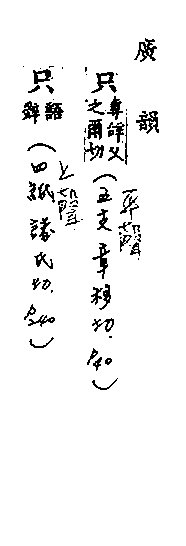 廣韻
只 專辞又之爾切（五支章移切. P40）平韻
只 語辞（四紙諸氏切. P240）上韻